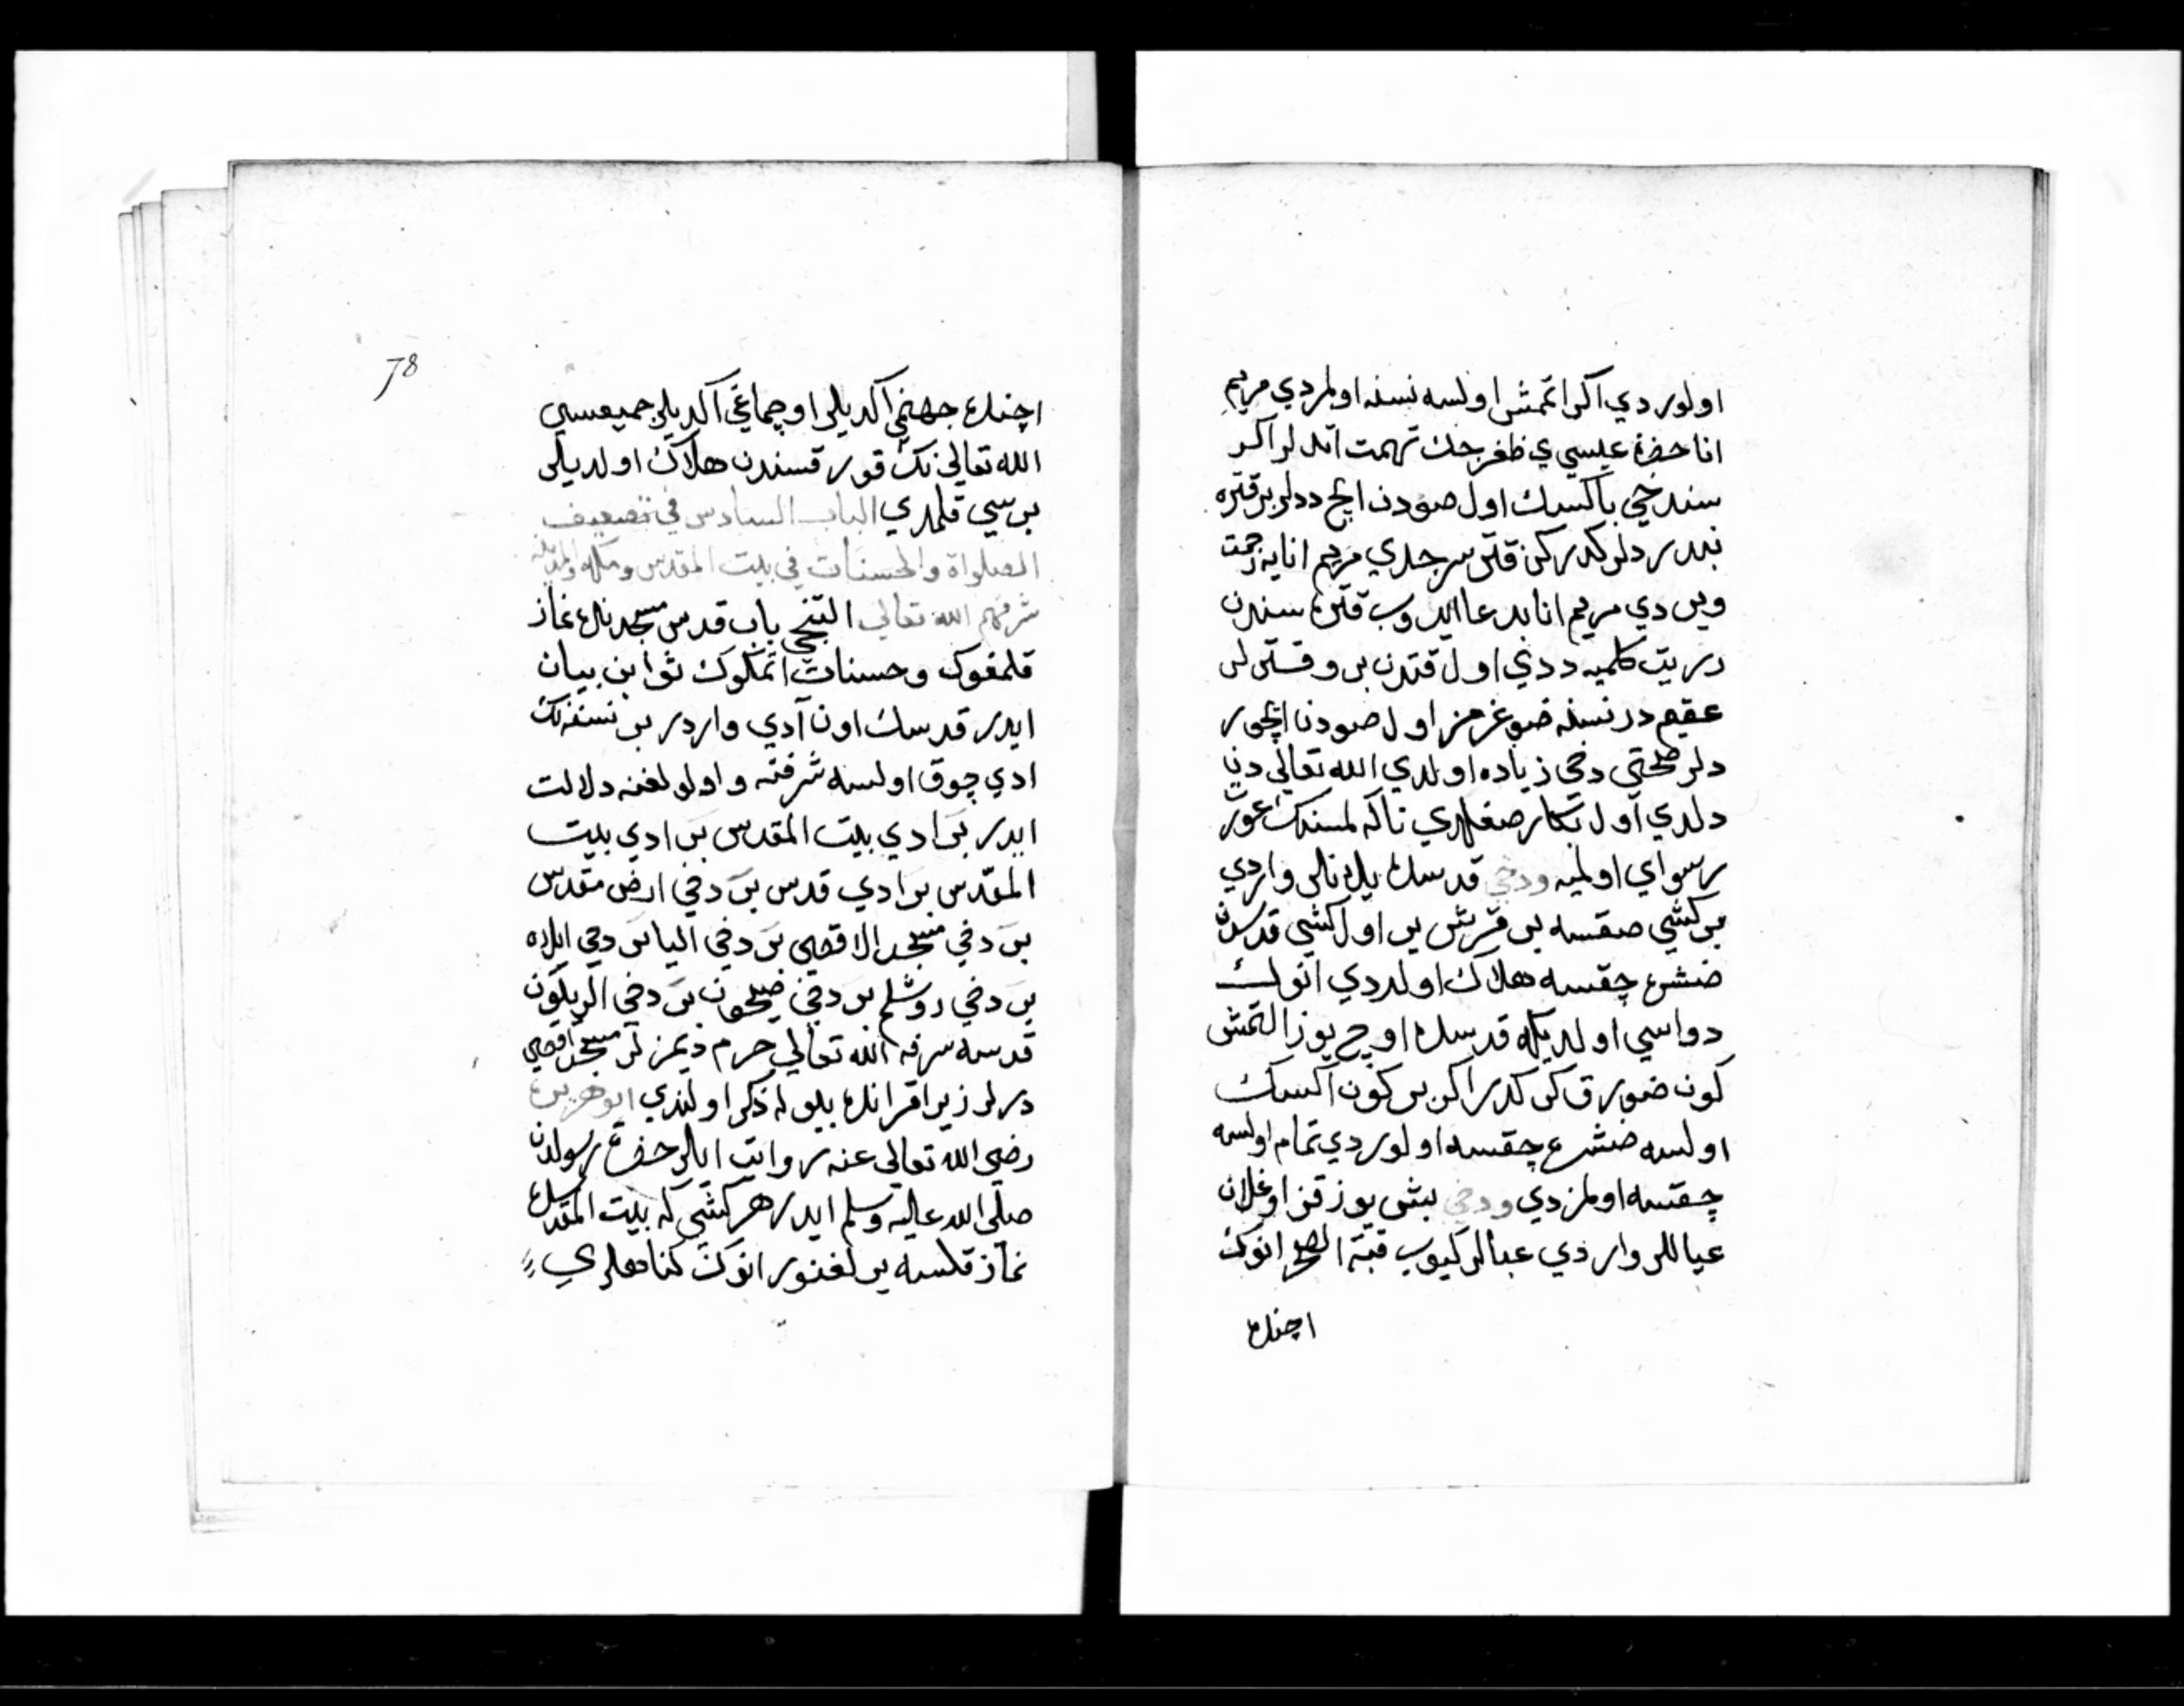 اولوردي اكر اتممش اولسه نسنه اولمزدي مريم
انا حضرة عيسي ي طغرجك تهمت اتدلر اكر
سندخي پاكسك اول صودن ايچ ددلر بر قتره
نيدر دلر كدركن قتر سرجدي مريم انايه زحمت
ويردي مريم انا بد عا ايدوب قتره سندن
يت كلميه ددي اول قتدن بر و قسترلر
عقيم در نسنه ضوغرمز اول صودن ايچور
دلر صحتي دخي زياده اولدي الله تعالي دن
دلدي اول تكار صغلدي تاكه لمسندك عورت
رسواي اولميه ودخي قدسده يلانلر واردي
بر كشي صقسه بر قرش بر اول كشي قدسدن
ضشره چقسه هلاك اولردي انوك
دواسي اولديكه قدسده اوچ يوز التمش
كون ضورق كر كدر اكر بر كون اكسك
اولسه ضشره چقسه اولوردي تمام اولسه
چقسه اولمزدي ودخي بش يوز قز اوغلان
عياللر واردي عبالر كيوب قبة الصخره انوك
اچنده
78
اچنده جهنمي اكديلر اوچماغي اكديلر جميعسي
الله تعالي نك قورقسندن هلاك اولديلر
برسي قلمدي الباب السادس في تضعيف
الصلواة والحسنات في بيت المقدس ومكه والمدينه
شرفهم الله تعالي التنجي باب قدس مسجدنده نماز
قلمغوك وحسنات اتمكوك ثوابن بيان
ايدر قدسك اون آدي واردر بر نسنه نك
ادي چوق اولسه شرفنه و اولولغنه دلالت
ايدر بر ادي بيت المقدس بر ادي بيت
المقدس بر ادي قدس بر دخي ارض مقدس
بر دخي مسجد الاقصي بر دخي الياس دخي ايلاه
بر دخي روشلم بر دخي صيحون بر دخي الريلون
قدسه شرفه الله تعالي حرم ديمزلر مسجد اقصي
درلر زيرا قرانده بويله ذكر اولندي ابو هريره
رضي الله تعالي عنه روايت ايالر حضرة رسولدن
صلي الله عاليه وسلم ايدر هر كشي كه بيت المقدسده
نماز قلسه يرلغنور انوك كناهلري